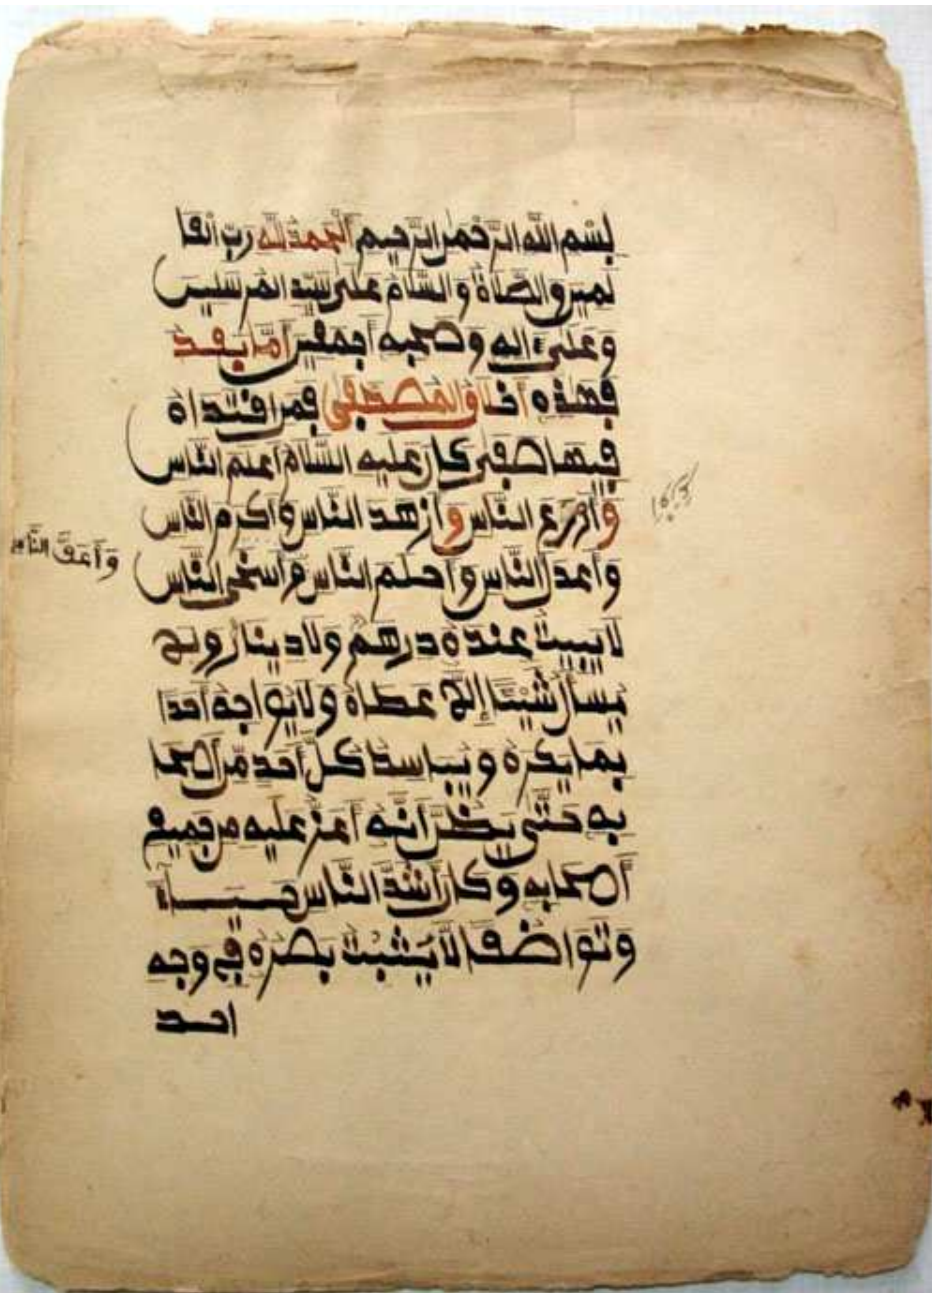 بِسْمِ اللَّهِ الرَّحْمَنِ الرَّحِيمِ الْحَمْدُ لِلَّهِ رَبِّ الْعَا
لمين والصلاة والسلام على سيد المرسلين
وعلى ءاله وصحبه أجمعين أما بعد
فهذه أخلاق المصطفى فمن اقتداه
فيها صفى كان عليه السلام أعلم الناس
وأورع الناس وأزهد الناس وأكرم الناس
وأعف الناس
وأعدل الناس وأحلم الناس وأسخى الناس
لا يبيت عنده درهم ولا دينار ولم
يسأل شيئا إلا عطاه ولا يواجه أحدا
بما يكره ويباسط كل أحد من أصحا
به حتى يظن أنه أعز عليه من جميع
أصحابه وكان أشد الناس حياء
وتواضعا لا يثبت بصره في وجه
احد